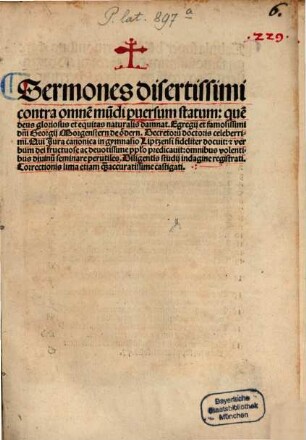 P. lat. 897 a
6.
229.
Sermones disertissimi
contra omnē mūdi puersum statum: quē
deus gloriosus et equitas naturalis damnat. Egregij et famosissimi
dñi Georgij Morgenstern de ödern. Decretorū doctoris celeberri-
mi. Qui Jura canonica in gymnasio Liptzensi fideliter docuit: ⁊ ver
bum dei fructuose ac deuotissime pplo predicauit: omnibus volenti-
bus diuinū seminare perutiles. Diligentis studij indagine registrati.
Correctionis lima etiam q̄accuratissime castigati.
Bayerische
Staatsbibliothek
München